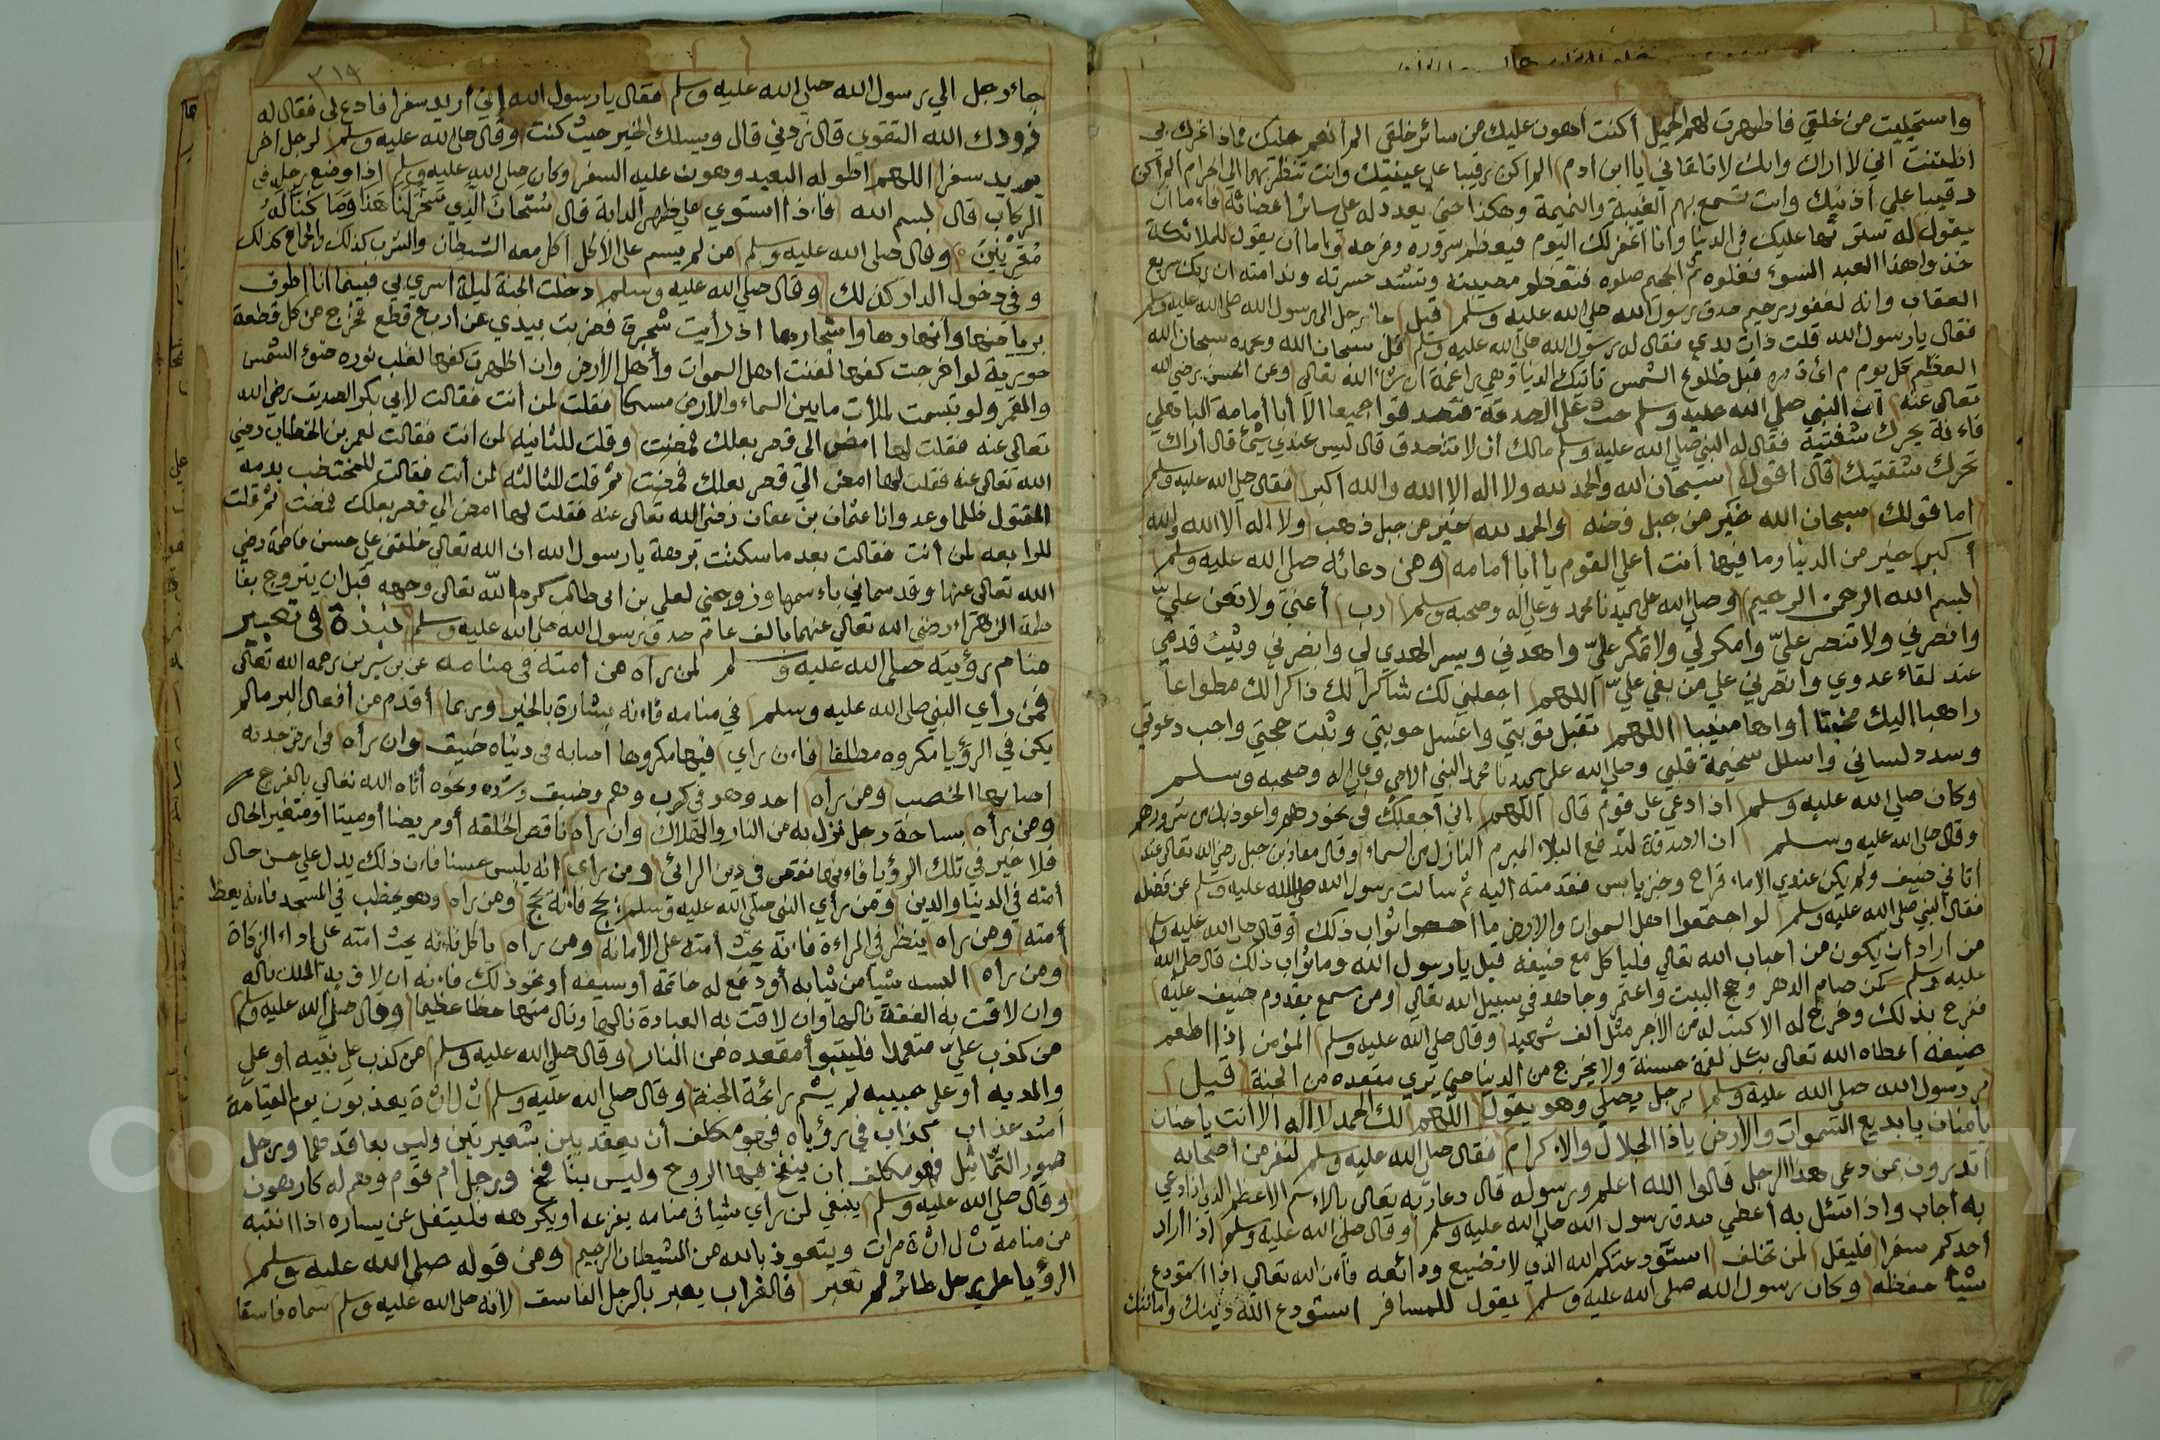 واستحييت من خلقي فأظهرت لهم الجميل أكنت أهون عليك من سائر خلقي ألم أنعم عليك فماذا غرك بي
أظننت أني لا أراك وانك لا تلقاني يا ابن ادم ألم أكن رقيبا على عينيك وانت تنظر بهما الى الحرام ألم أكن
رقيبا علي أذنيك وانت تسمع بهم الغيبة والنميمة وهكذا حتى يعدد له على سائر أعضائه فاءما أن
يقول له سترتها عليك في الدنيا وانا أغفر لك اليوم فيعظم سروره وفرحه واما أن يقول للملائكة
خذوا هذا العبد السوء فغلوه ثم الجحيم صلوه فتعظم مصيبته وتشتد حسرته وندامته ان ربك سريع
العقاب وانه لغفور رحيم صدق رسول الله صلي الله عليه وسلم قيل جاء رجل الى رسول الله صلى الله عليه وسلم
فقال يا رسول الله قلت ذات يدي فقال له رسول الله صلى الله عليه وسلم قل سبحان الله وبحمده سبحان الله
العظيم كل يوم مائة مره قبل طلوع الشمس تأتيك الدنيا وهي راغمة ان شاء الله تعالى وعن رضي الله
تعالى عنه أن النبي صلى الله عليه وسلم حث على الصدقة فتصدقوا جميعا الا أبا أمامة الباهلي
فاءنه يحرك شفتيه فقال له النبي صلى الله عليه وسلم مالك أن لا تتصدق قال ليس عندي شيئ قال أراك
تحرك شفتيك قال أقول سبحان الله والحمد لله ولا اله الا الله والله أكبر فقال صلى الله عليه وسلم
اما قولك سبحان الله خير من جبل فضه والحمد لله خير من جبل ذهب ولا اله الا الله والله
أكبر خير من الدنيا وما فيها أنت أعلى القوم يا أبا أمامه ومن دعائه صلى الله عليه وسلم
بسم الله الرحمن الرحيم وصلى الله على سيدنا محمد وعلى اله وصحبه وسلم رب أعني ولا تعن عليّ
وانصرني ولا تنصر عليّ وامكر لي ولا تمكر عليّ واهدني ويسر الهدي لي وانصرني وثبت قدمي
عند لقاء عدوي وانصرني على من بغي عليّ اللهم اجعلني لك شاكرا لك ذاكرا لك مطواعا
راهبا اليك مخبتا أواها منيبا اللهم تقبل توبتي واغسل حوبتي وثبت حجتي واجب دعوتي
وسدد لساني واسلل سخيمة قلبي وصلى الله على سيدنا محمد النبي الامي وعلى اله وصحبه وسلم
وكان صلى الله عليه وسلم اذا دعي على قوم قال اللهم إني أجعلك في نحورهم واعوذ بك من شرورهم
وقال صلى الله عليه وسلم ان الصدقة لتدفع البلاء المبرم النازل من السماء وقال معاذ بن جبل رضي الله تعالى عنه
أتاني ضيف ولم يكن عندي الا ماء قراح وخبز يابس فقدمته اليه ثم سألت رسول الله صلى الله عليه وسلم عن فضله
فقال النبي صلى الله عليه وسلم لو اجتمعوا اهل السموات والارض ما احصوا ثواب ذلك وقال صلى الله عليه وسلم
من أراد أن يكون من احباب الله تعالى فليأكل مع ضيفه قيل يا رسول الله وما ثواب ذلك قال صلى الله
عليه وسلم كمن صام الدهر وحج البيت واعتمر وجاهد في سبيل الله تعالى ومن سمع بقدوم ضيف عليه
ففرح بذلك وخرج له الا كتب له من الأجر مثل ألف شهيد وقال صلى الله عليه وسلم المؤمن إذا اطعم
ضيفه أعطاه الله تعالى بكل لقمة حسنة ولا يخرج من الدنيا حتى يري مقعده من الجنة قيل
مر رسول الله صلى الله عليه وسلم برجل يصلي وهو يقول اللهم لك الحمد لا اله الا أنت يا حنان
يا منان يا بديع السموات والأرض يا ذا الجلال والاكرام فقال صلى الله عليه وسلم لنفر من أصحابه
أتدرون بمن دعي هذا الرجل قالوا الله أعلم ورسوله قال دعا ربه تعالى بالاءسم الاعظم الذي اذا دعي
به أجاب واذا سئل به أعطي صدق رسول الله صلى الله عليه وسلم وقال صلى الله عليه وسلم اذا أراد
أحدكم سفرا فليقل لمن تخلف استودعتكم الله الذي لا تضيع ودائعه فاءن الله تعالي اذا استودع
شيأ حفظه وكان رسول الله صلى الله عليه وسلم يقول للمسافر استودع الله دينك وامانتك
٣١٩
جاء رجل الي رسول الله صلى الله عليه وسلم فقال يا رسول الله إني أريد سفرا فادع لي فقال له
زودك الله التقوي قال زدني قال ويسر لك الخير حيث كنت وقال صلى الله عليه وسلم لرجل اخر
يريد سفرا اللهم اطو له البعيد وهون عليه السفر وكان صلى الله عليه وسلم اذا وضع رجله في
الركاب قال بسم الله فاءذا استوي على ظهر الدابة قال سُبْحَانَ الَّذِي سَخَّرَ لَنَا هَذَا وَمَا كُنَّا لَهُ
مُقْرِنِينَ وقال صلى الله عليه وسلم من لم يسم على الاكل أكل معه الشيطان والشرب كذلك والجماع كذلك
وفي دخول الدار كذلك وقال صلى الله عليه وسلم دخلت الجنة ليلة اسري بي فبينما أنا أطوف
برياضها وأنهارها واشجارها اذ رأيت شجرة فضربت بيدي عن أربع قطع فخرج من كل قطعة
حورية لو أخرجت كفها لفتنت اهل السموات وأهل الأرض وان اظهرت كفها لغلب نوره ضوء الشمس
والقمر ولو تبسمت لملأت ما بين السماء والأرض مسكا فقلت لمن أنت فقالت لأبي بكر الصديق رضي الله
تعالى عنه فقلت لها امض الى قصر بعلك فمضت وقلت للثانية لمن أنت فقالت لعمر بن الخطاب رضي
الله تعالى عنه فقلت لها امض الى قصر بعلك فمضت ثم قلت للثالثه لمن أنت فقالت للمختضب بدمه
المقتول ظلما وعدوانا عثمان بن عفان رضي الله تعالى عنه فقلت لها امض الى قصر بعلك فمضت ثم قلت
للرابعه لمن أنت فقالت بعد ما سكتت برهة يا رسول الله ان الله تعالى خلقني على حسن فاطمة رضي
الله تعالى عنها وقد سماني باءسمها وزوجني لعلي بن ابى طالب كرم الله تعالى وجهه قبل ان يتزوج بفا
طمة الزهراء رضي الله تعالى عنهما بألف عام صدق رسول الله صلى الله عليه وسلم نبذة في تعبير
منام رؤيته صلى الله عليه وسلم لمن راه من أمته في منامه عن بن سيرين رحمه الله تعالى
فمن رأي النبي صلى الله عليه وسلم في منامه فاءنه بشارة بالخير وربما أقدم من أفعال البر مالم
يكن في الرؤيا مكروه مطلقا فاءن راي فيها مكروها أصابه في دنياه ضيق وان رأه في ارض جدبه
اصابها الخصب ومن رأه احد وهو في كرب وهم وضيق وشده ونحوه أتاه الله تعالي بالفرج
ومن رأه بساحة رجل نزل به من النار والهلاك وان رأه ناقص الخلقه أو مريضا أو ميتا او متغير الحال
فلا خير في تلك الرؤيا فاءنها نقص في دين الرائى ومن رأي انه يلبس حسنا فاءن ذلك يدل على حسن حال
أمته في الدنيا والدين ومن رأي النبي صلى الله عليه وسلم يحج فاءنه يحج ومن رأه وهو يخطب في المسجد فاءنه يعظ
أمته ومن راه ينظر في المراءة فاءنه يحث أمته على الأمانة ومن رأه يأكل فاءنه يحث امته على اداء الزكاة
ومن رأه البسه شيأ من ثيابه أو دفع له خاتمه أو سيفه أو نحو ذلك فاءنه ان لاق به الملك ناله
وان لاقت به الفقة نالها وان لاقت به العبادة نالها ونال منها حظا عظيما وقال صلى الله عليه وسلم
من كذب عليّ متعمدا فليتبوأ مقعده من النار وقال صلى الله عليه وسلم من كذب على نبيه او على
والديه أو على حبيبه لم يشم رائحة الجنة وقال صلى الله عليه وسلم ثلاثة يعذبون يوم القيامة
أشد عذاب كذاب في رؤياه فهو مكلف أن يعقد بين شعيرتين وليس بعاقدهما ورجل
صور التماثيل فهو مكلف ان ينفخ فيها الروح وليس بنافخ ورجل أم قوم وهم له كارهون
وقال صلى الله عليه وسلم ينبغي لمن رأي شيأ في منامه يفزعه أو يكرهه فليتفل عن يساره اذا انتبه
من منامه ثلاثة مرات ويتعوذ بالله من الشيطان الرجيم ومن قوله صلى الله عليه وسلم
الرؤيا على رجل طائر لم تعبر فالغراب يعبر بالرجل الفاسق لأنه صلى الله عليه وسلم سماه فاسقا